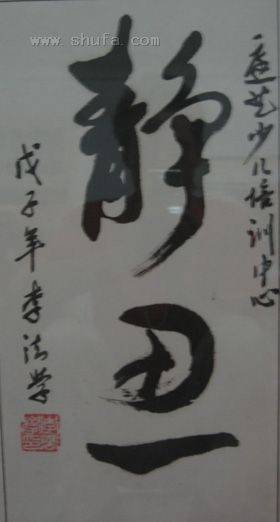 艺少儿培训中心
静思
戊子年李法学
www.shufa.com